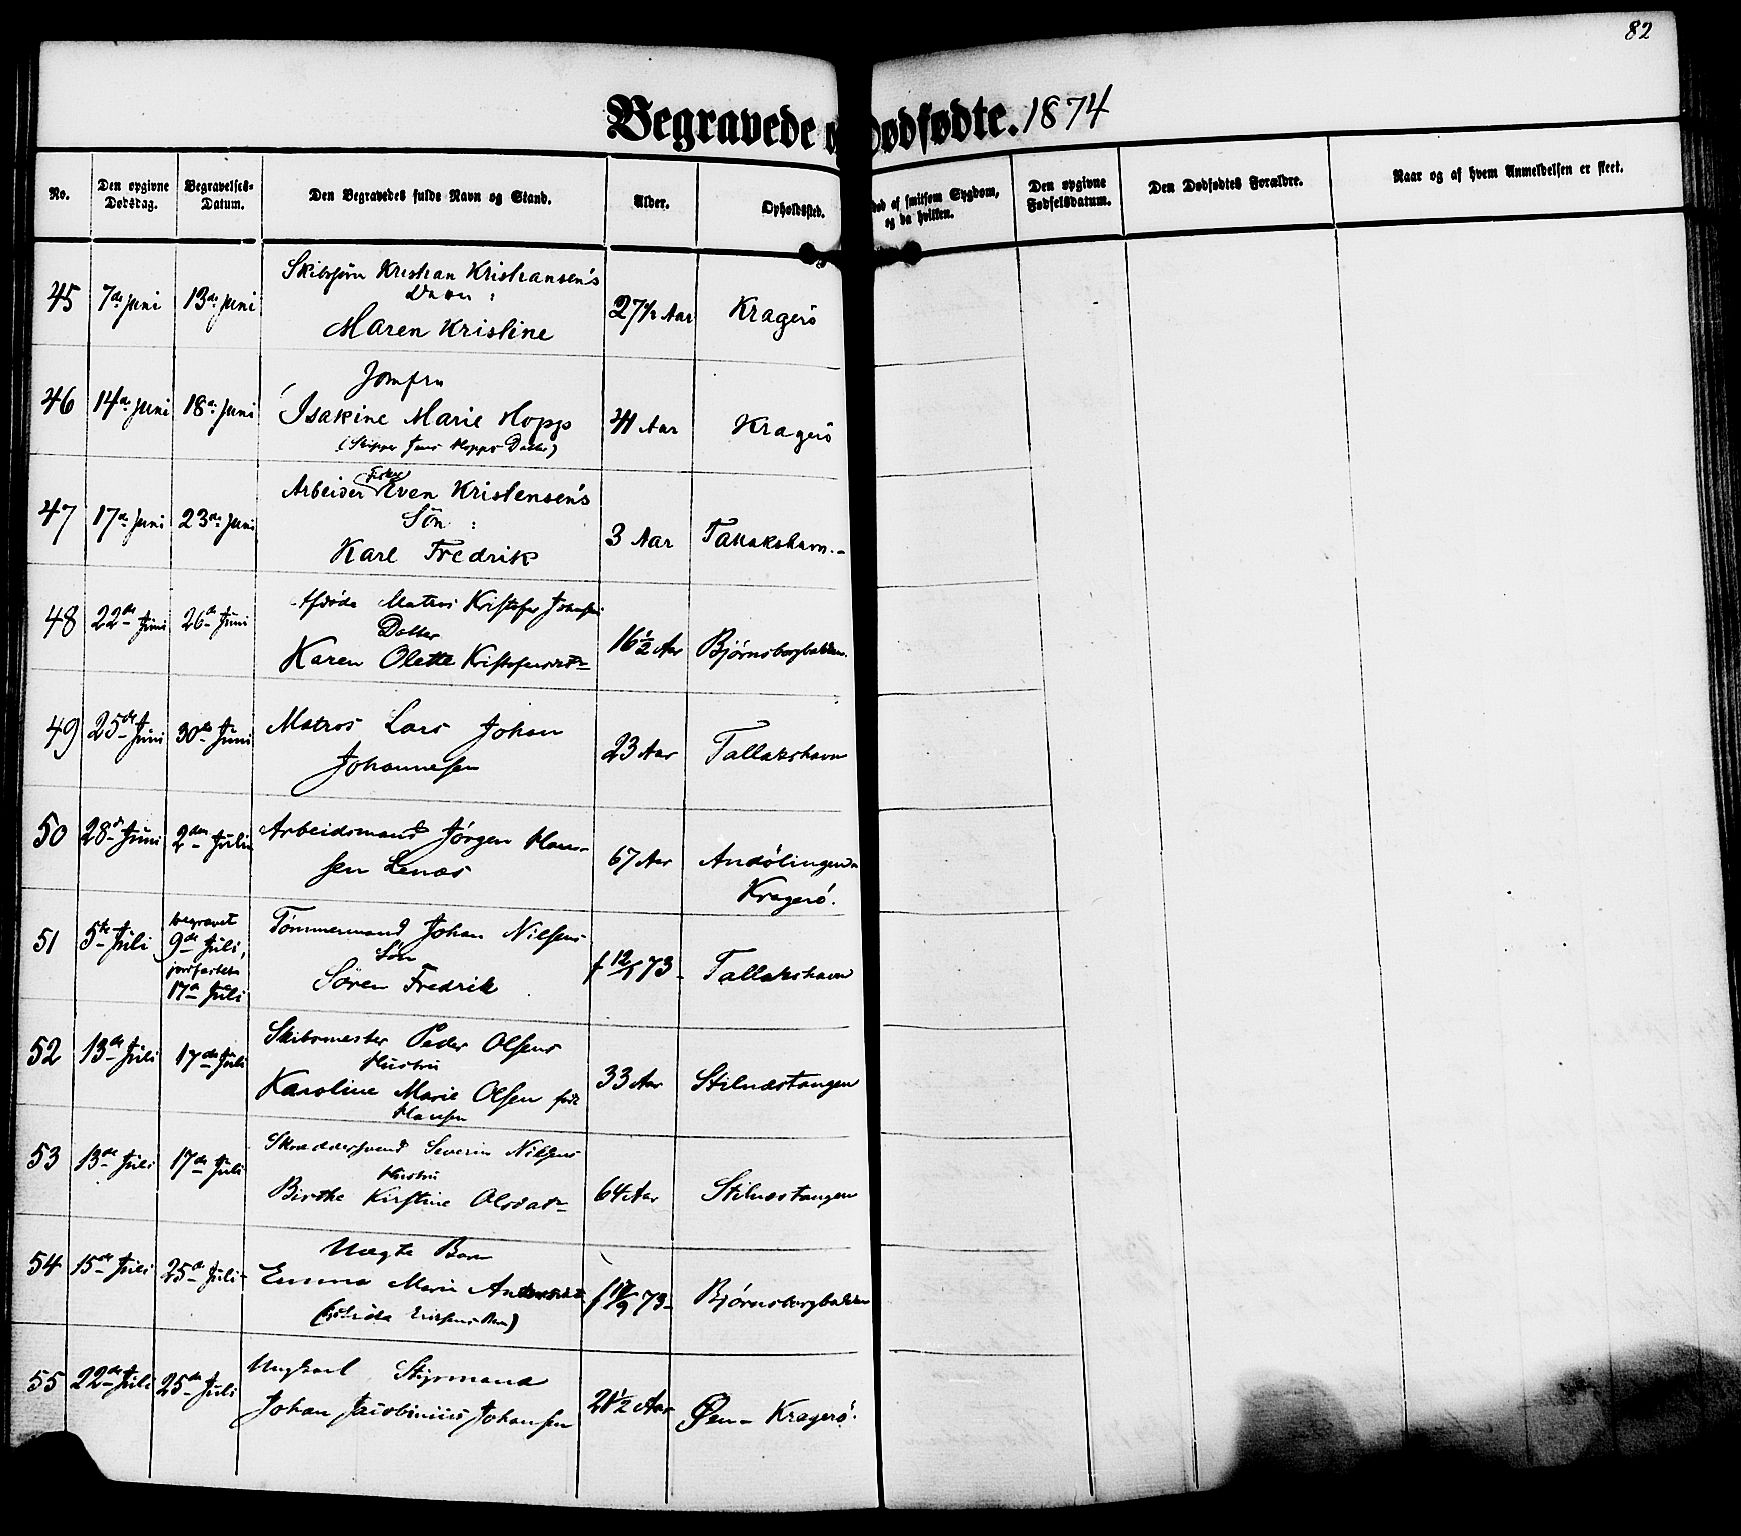 82
Begravede Dødfødte. 1874
No.
Den opgivne Dødsdag.
Begravelses-Datum.
Den Begravedes fulde Navn og Stand.
Alder.
Opholdssted.
død af smitsom Sygdom, og da hvilken.
Den opgivne Fødselsdatum.
Den Dødfødtes Forældre.
Naar og af hvem Anmeldelsen er skeet.
45 7de Juni 13de Juni
Kristian Kristiansen's
Maren Kristine
27 1/2 Aar Kragerö
46 14de Juni 18de Juni
Jomfru
Isakine Marie Hopp
(Skipper Jens Hopps Datter)
Aar Kragerö
47 17de Juni 23de Juni
Arbeider Even Kristensen's
Sön:
Karl Fredrik
3 Aar Tallakshavn.-
48 22de Juni 26de Juni
Afdøde Matros Kristofer Johansens
Datter
Karen Olette Kristofersdtr
16 1/2 Aar Bjørnsborgbakken.
49 25de Juni 30de Juni
Matros Lars Johan
Johannesen
23 Aar Tallakshavn
50 28de Juni 2den Juli
Arbeidsmand Jörgen Han-
sen Lenæs
67 Aar Andölingen
Kragerö.
51 5te Juli
begravet
9de Juli,
jordfæstet
17de Juli
Tömmermand Johan Nilsens
Sön
Sören Fredrik
f 12/5 73- Tallakshavn
52 13de Juli 17de Juli
Skibsmester Peder Olsens
Hustru
Karoline Marie Olsen född
Hansen
33 Aar Stilnæstangen
53 13de Juli 17de Juli
Skræddersvend Severin Nilsens
Hustru
Birthe Kirstine Olsdatr
64 Aar Stilnæstangen
54 15de Juli 25de Juli
Uægte Barn
Emma Marie
73- Bjørnsborgbakken
55 22de Juli 25de Juli
Ungkarl Styrmand
Johan Jacobinius Johansen
21 1/2 Aar Øen- Kragerö.